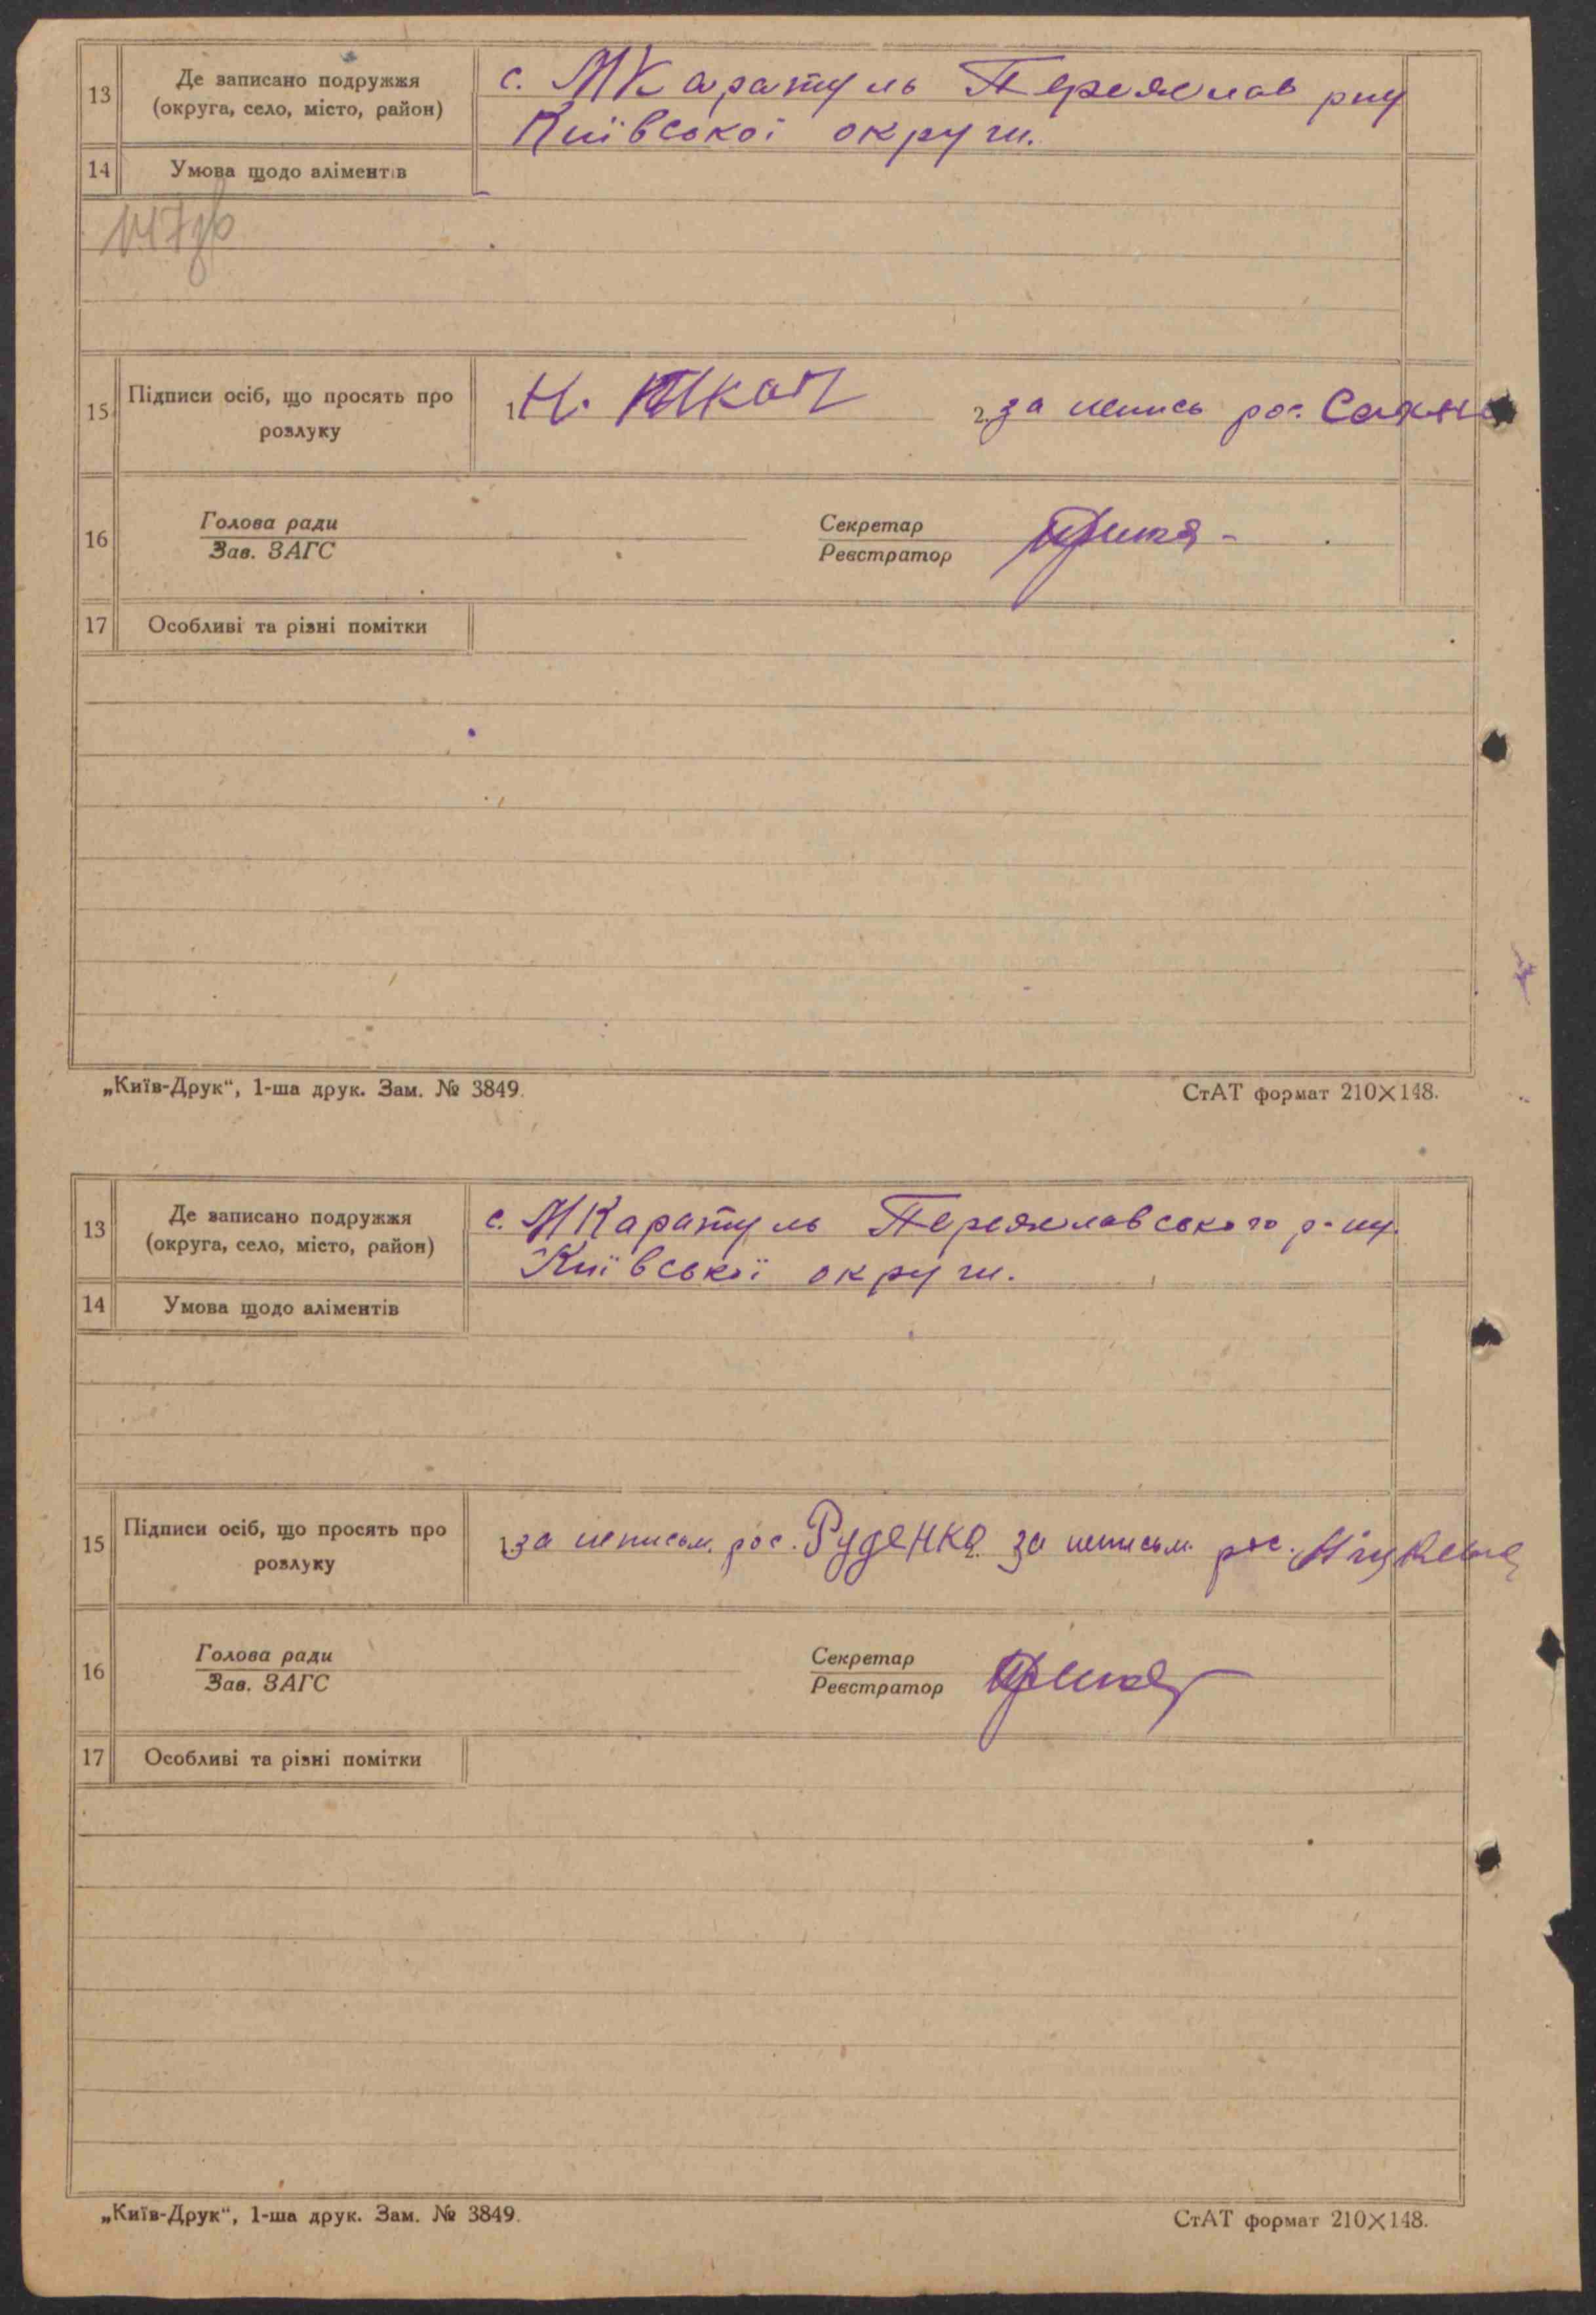 13 Де записано подружжя
(округа, село, місто, район)
с. МКаратуль Переяслав рну
Київської округи.
14 Умова щодо аліментів
15 Підписи осіб, що просять про
розлуку
1. Н. Ткач 2. за рос.
16 Голова ради
Зав. ЗАГС
Секретар
Реєстратор
17 Особливі та різні помітки
„Київ-Друк“, 1-ша друк. Зам. № 3849. СтАТ формат 210×148.
13 Де записано подружжя
(округа, село, місто, район)
с. МКаратуль Переяславського р-ну.
Київської округи.
14 Умова щодо аліментів
15 Підписи осіб, що просять про
розлуку
1. за неписьм. рос. Руденко 2. за неписьм. рос.
16 Голова ради
Зав. ЗАГС
Секретар
Реєстратор
17 Особливі та різні помітки
„Київ-Друк“, 1-ша друк. Зам. № 3849. СтАТ формат 210×148.